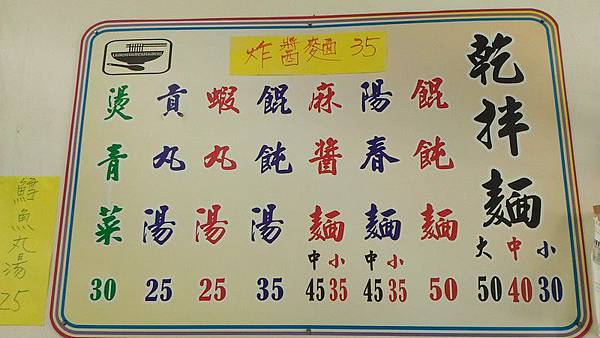 炸醬麵 35
乾拌麵
大 中 小
50 40 30
餛飩麵
50
陽春麵
中 小
45 35
麻醬麵
中 小
45 35
餛飩湯
35
蝦丸湯
25
貢丸湯
25
燙青菜
30
鱘魚丸湯
25